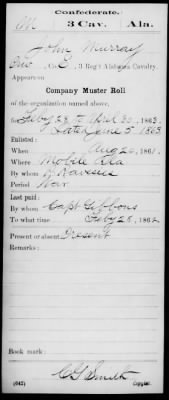 Confederate.
M 3 Cav. Ala.
John Murray
Co. 3 Reg't Alabama Cavalry.
Appears on
Company Muster Roll
of the organization named above,
for Feby 28 to 30, 1863.
Dated June 5 1863
Enlisted:
When Aug 20, 1861.
Where Mobile Ala
By whom
Period War
Last paid:
By whom Capt Gibbons
To what time Feby 28, 186
Present or absent Present
Remarks:
Book mark:
C G Smith
(642) Copyist.